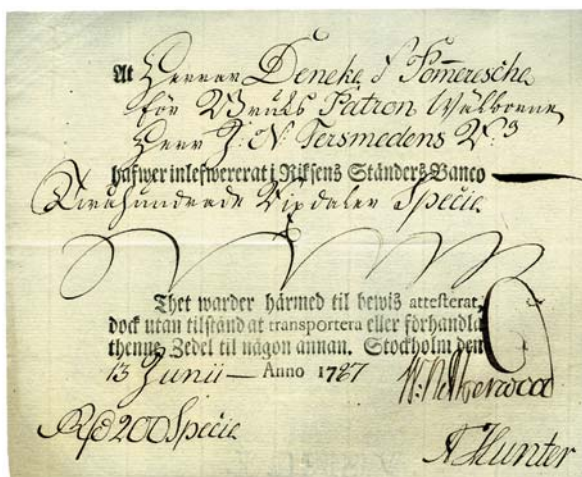 At Herrar Deneke & Pommeresche
för Bruks Patron Wälborne
Herr J. N. Tersmedens R:g
hafwer inlefwererat i Riksens Ständers Banco
Twåhundrade Rixdaler Specie
Thet warder härmed til bewis attesterat,
dock utan tilstånd at transportera eller förhandla
thenne Zedel til någon annan. Stockholm den
13 Junii Anno 1787
Rd 200 Specie
A Hunter